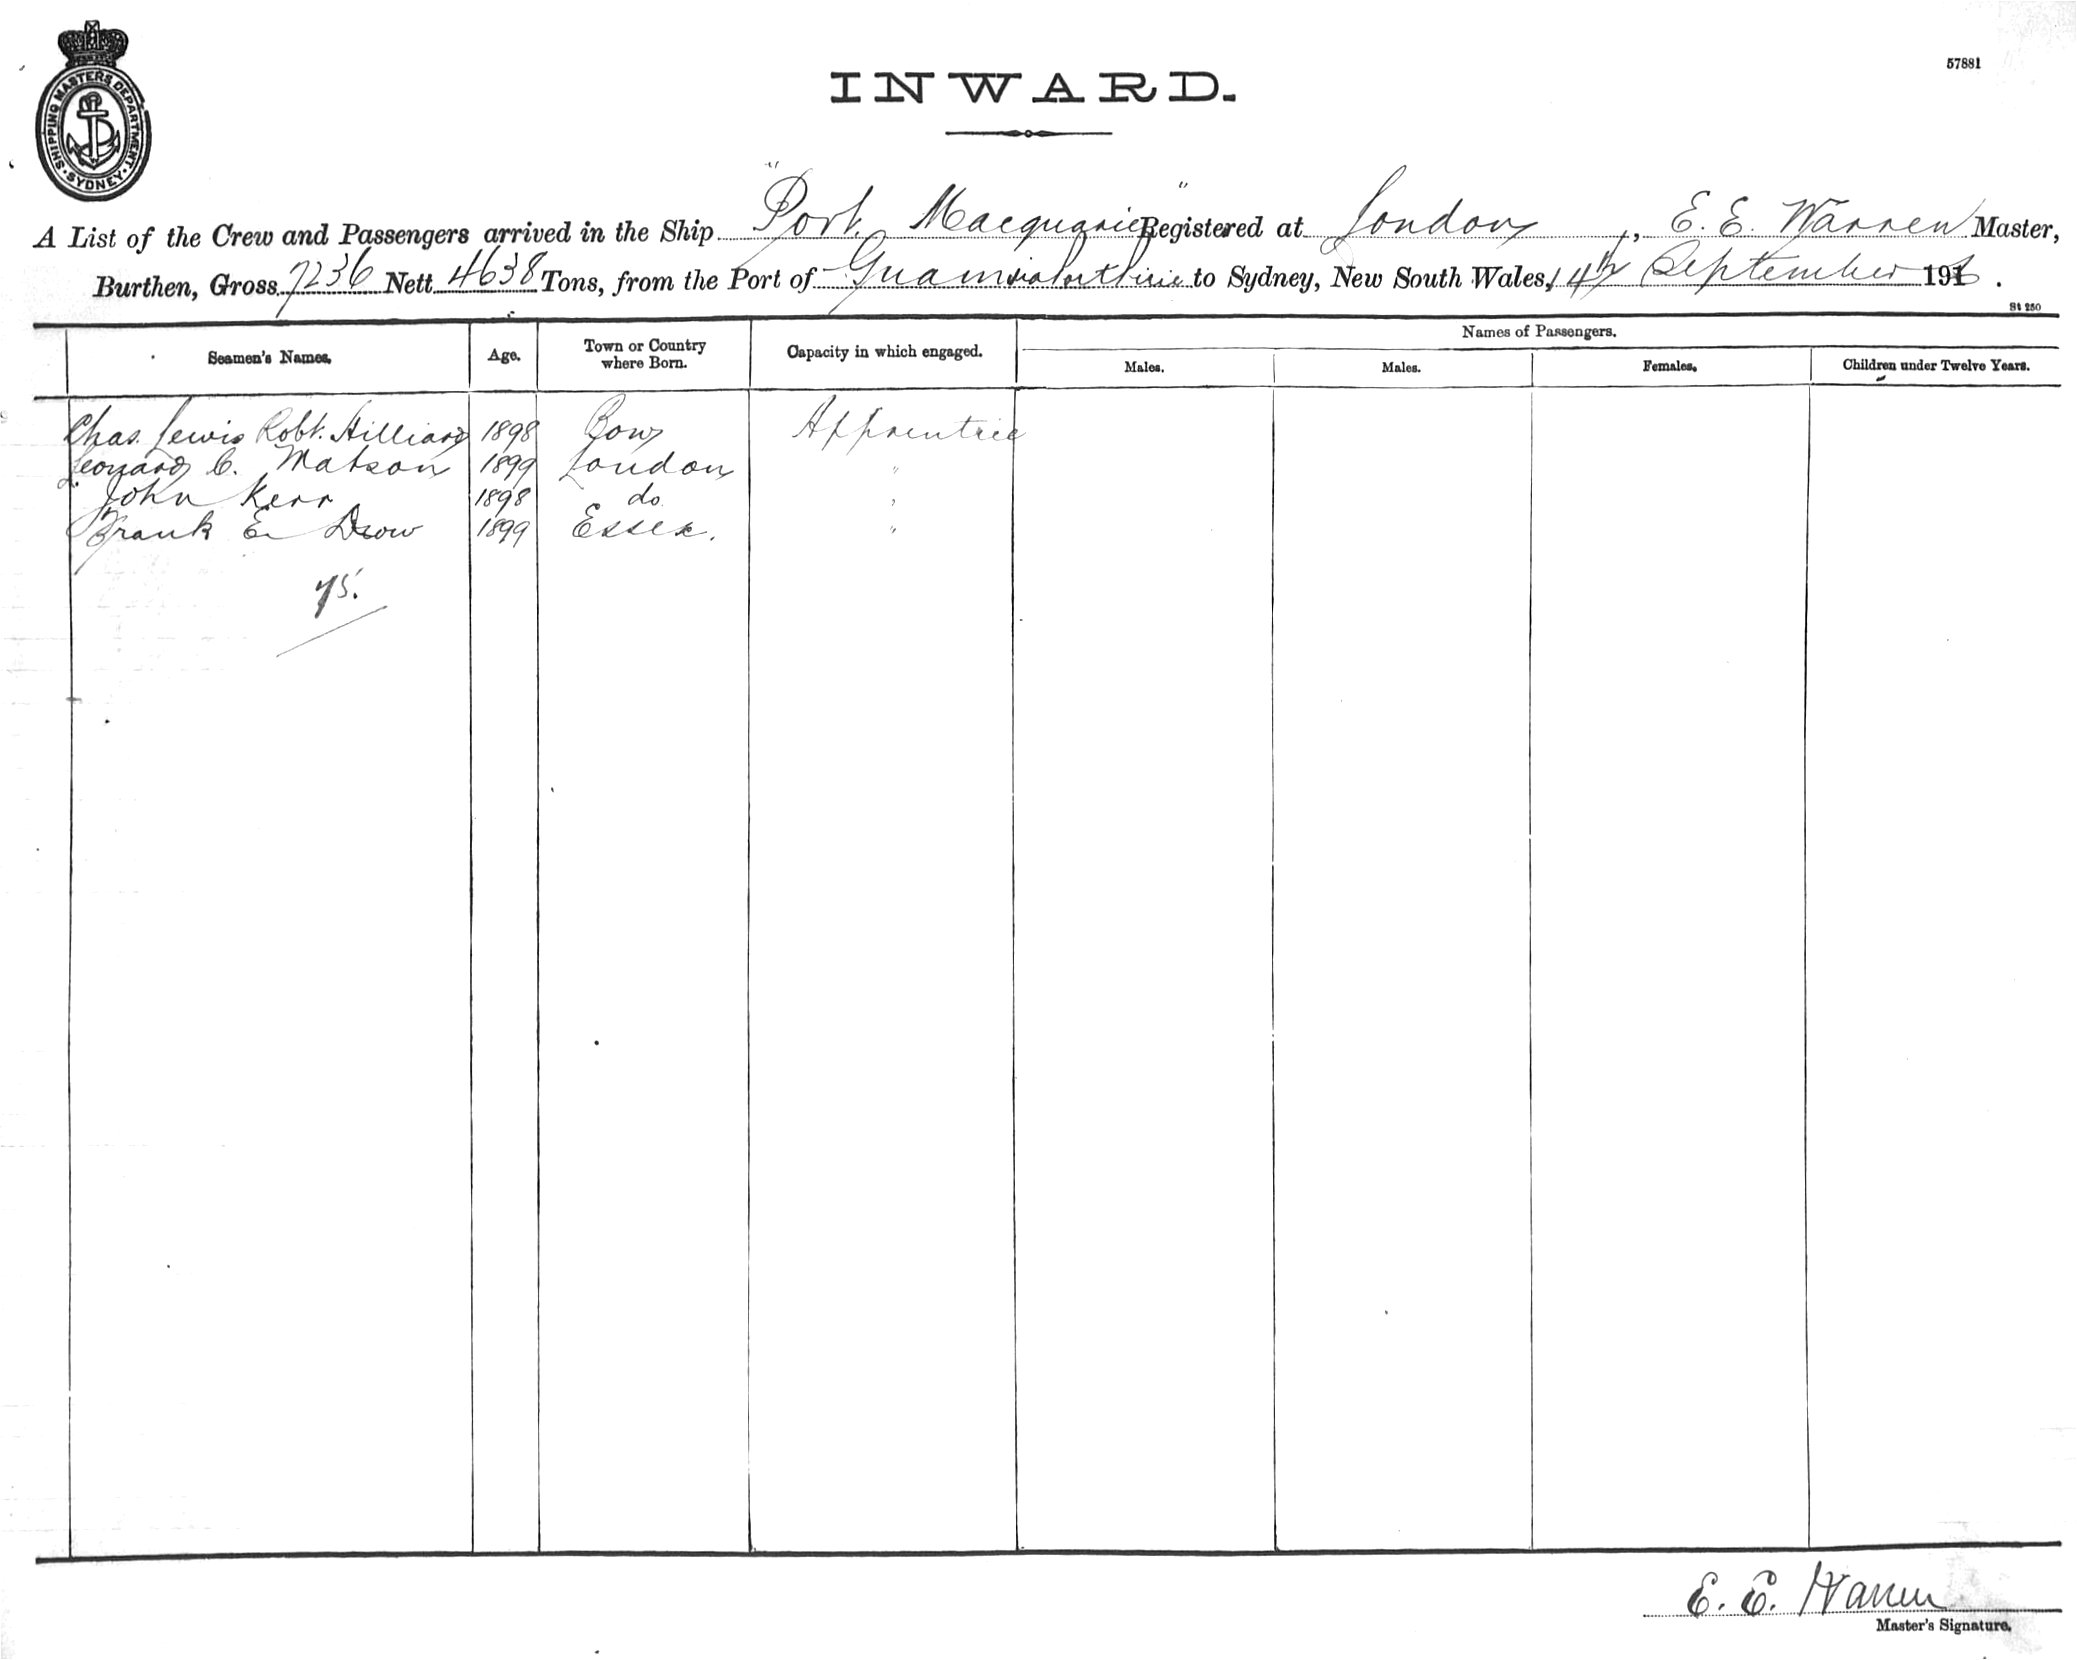 SHIPPING MASTERS DEPARTMENT
SYDNEY
57881
INWARD.
A List of the Crew and Passengers arrived in the Ship "Port Macquarie" Registered at London, E. E. Warren Master,
Burthen, Gross 7236 Nett 4638 Tons, from the Port of Guam via to Sydney, New South Wales, 14th September 191
St 250
Seamen's Names. Age. Town or Country where Born. Capacity in which engaged. Names of Passengers.
Males. Males. Females. Children under Twelve Years.
Chas. Lewis Robt. Hilliard 1898 Bow Apprentice
Leonard C. Matson 1899 London "
John Kerr 1898 do "
Frank E. Drow 1899 Essex. "
75.
E. E. Warren
Master's Signature.